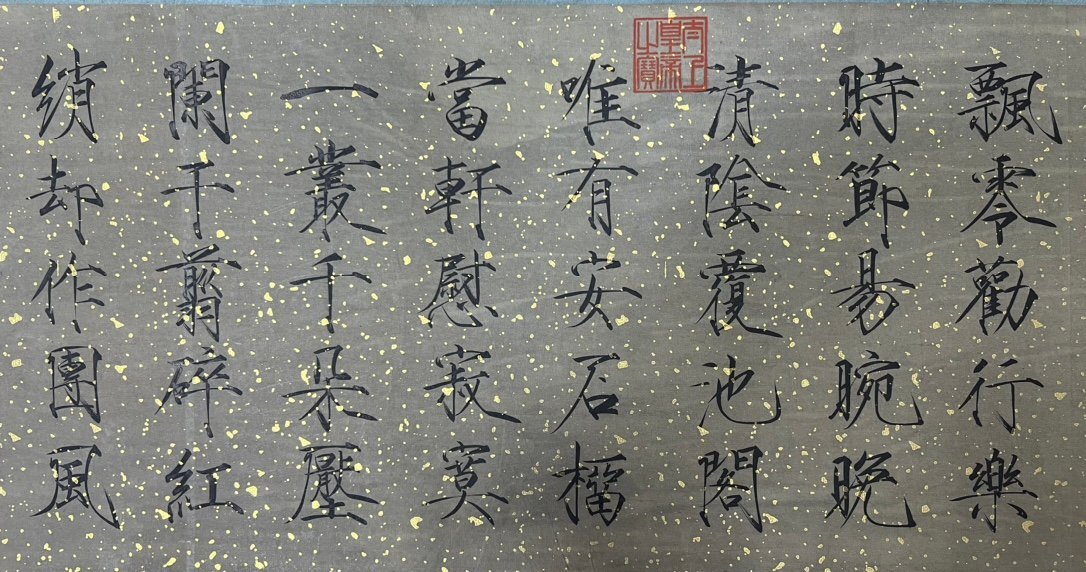 飄零勸行樂
時節易晼晚
清陰覆池閣
唯有安石榴
當軒慰寂寞
一叢千朵壓
闌干翦碎紅
綃却作團風
太上皇帝之寶